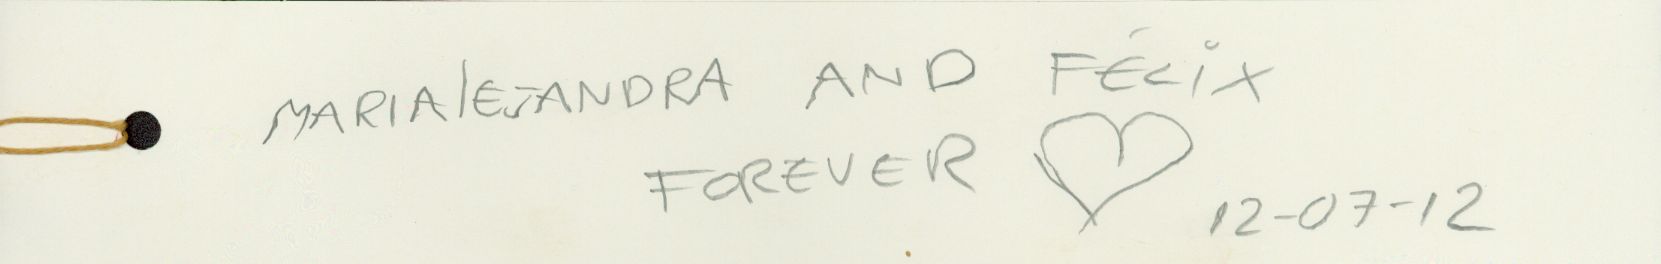 MARIAlEJANDRA AND FÉLiX
FOREVER
12-07-12